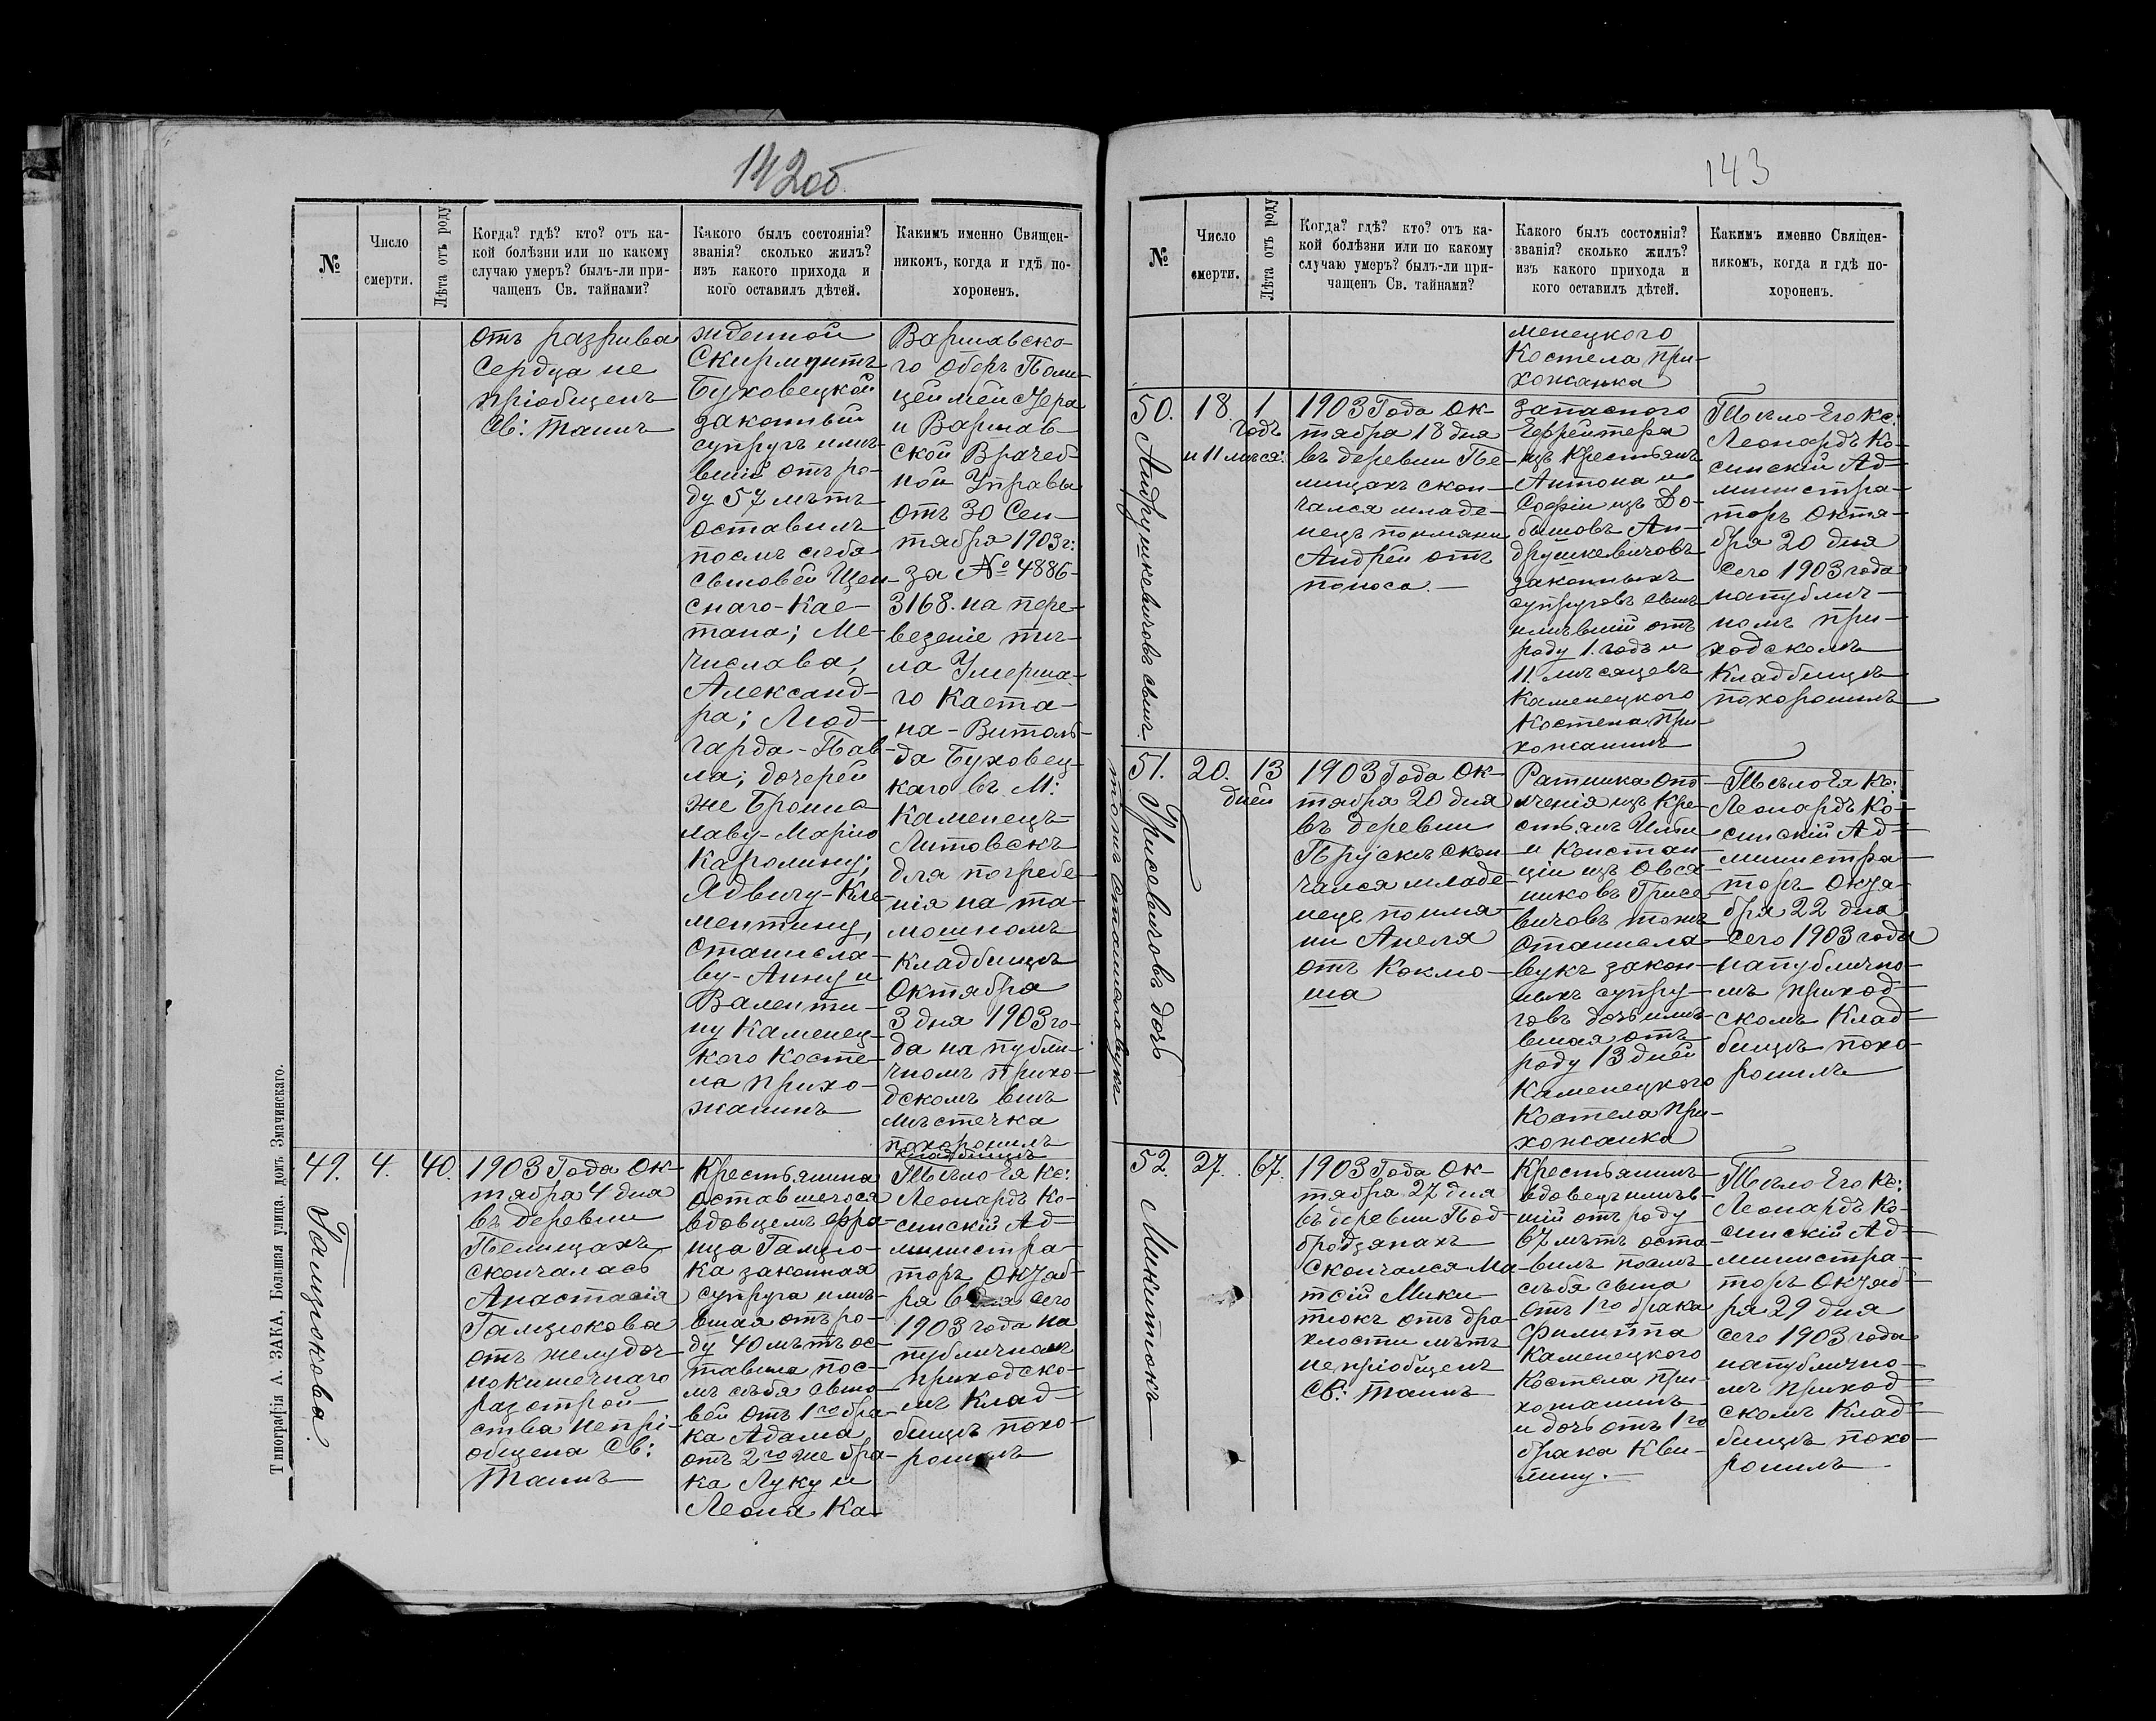 142об
№
Число
смерти.
Лѣта отъ роду
Когда? гдѣ? кто? отъ ка-
кой болѣзни или по какому
случаю умеръ? былъ-ли при-
чащенъ Св. тайнами?
Какого былъ состоянія?
званія? сколько жилъ?
изъ какого прихода и
кого оставилъ дѣтей.
Какимъ именно Священ-
никомъ, когда и гдѣ по-
хороненъ.
отъ разрива
Сердца не
пріобщенъ
Св: Таинъ
жденной
Скирмунтъ
Буховецкой
законный
супругъ имѣ-
вшій отъ ро-
ду 57 лѣтъ
оставилъ
послѣ себя
сыновей Щен-
снаго-Кае-
тана; Ме-
числава,
Александ-
ра; Люд-
гарда-Пав-
ла; дочерей
же Брони-
лаву-Марію
Каролину;
Ядвигу-Кле-
ментину,
Станисла-
ву-Анну и
Валенти-
ну Каменец-
кого Косте-
ла прихо-
жанинъ
Варшавско-
го Оберъ Поли-
цеймейстера
и Варшав-
ской Врачеб-
ной Управы
отъ 30 Сен-
тября 1903 г:
за № 4886-
3168. на пере-
везеніе тѣ-
ла Умерша-
го Каета-
на-Витоль-
да Буховец-
каго въ М:
Каменецъ-
Литовскъ
для погребе-
нія на та-
мошномъ
Кладбищѣ
Октября
3 дня 1903 го-
да на публи-
чномъ прихо-
дскомъ внѣ
мѣстечка
кладбищѣ
похоронилъ
49.
Гамзюкова.
4.
40.
1903 Года Ок-
тября 4 дня
въ деревни
Пелищахъ
скончалась
Анастасія
Гамзюкова
отъ желудоч-
нокишечнаго
разстрой-
ства непрі-
общена Св:
Таинъ
Крестьянина
оставшегося
вдовцемъ Фра-
нца Гамзю-
ка законная
супруга имѣ-
вшая отъ ро-
ду 40 лѣтъ ос-
тавила пос-
лѣ себя сыно-
вей отъ 1го бра-
ка Адама
отъ 2го же бра-
ка Луку и
Леона Ка-
Тѣло Ея Кс:
Леонардъ Ко-
синскій Ад-
министра-
торъ Октяб-
ря 6 дня сего
1903 года на
публичномъ
приходско-
мъ Клад-
бищѣ похо-
ронилъ
Типографія А. ЗАКА, Большая улица, домъ Значинскаго.
143
№
Число
смерти.
Лѣта отъ роду
Когда? гдѣ? кто? отъ ка-
кой болѣзни или по какому
случаю умеръ? былъ-ли при-
чащенъ Св. тайнами?
Какого былъ состоянія?
званія? сколько жилъ?
изъ какого прихода и
кого оставилъ дѣтей.
Какимъ именно Священ-
никомъ, когда и гдѣ по-
хороненъ.
менецкого
Костела при-
хожанка
50.
Андрушкевичовъ сынъ
18.
1
годъ
и 11 мѣся:
1903 Года Ок-
тября 18 дня
въ деревни Пе-
лищахъ скон-
чался младе-
нецъ поимяни
Андрей отъ
поноса.
Запасного
Ефрейтера
изъ Крестьянъ
Антона и
Софіи изъ До-
бышовъ Ан-
друшкевичовъ
законныхъ
супруговъ сынъ
имѣвшій отъ
роду 1. годъ и
11. мѣсяцевъ
Каменецкого
Костела при-
хожанинъ
Тѣло Его Кс:
Леонардъ Ко-
синскій Ад-
министра-
торъ Октя-
бря 20 дня
сего 1903 года
напублич-
номъ при-
ходскомъ
Кладбищѣ
похоронилъ
51.
Грисевичовъ дочь
тожъ Станиславукъ
20.
13
дней
1903 Года Ок-
тября 20 дня
въ деревни
Прускѣ скон-
чался младе-
нецъ поимя-
ни Анеля
отъ Кокмо-
ша
Ратника Опо
лченія изъ Кре-
стьянъ
и Констан-
ціи изъ Овся-
никовъ Грисе-
вичовъ тожъ
Станисла-
вукъ закон-
ныхъ супру-
говъ дочь имѣ-
вшая отъ
роду 13 дней
Каменецкого
Костела при-
хожанка
Тѣло Ея Кс:
Леонардъ Ко-
синскій Ад-
министра-
торъ Октя-
бря 22 дня
сего 1903 года
напублично-
мъ приход-
скомъ Клад-
бищѣ похо-
ронилъ
52.
Микитюкъ
27.
67.
1903 Года Ок-
тября 27 дня
въ деревни Под-
бродзянахъ
Скончался Ма-
тсій Мики-
тюкъ отъ дра-
хлости лѣтъ
непріобщенъ
Св: Таинъ
Крестьянинъ
вдовецъ имѣв-
шій отъ роду
67 лѣтъ оста-
вилъ послѣ
себя сына
отъ 1го брака
Филиппа
Каменецкого
Костела при-
хожанинъ
и дочь отъ 1го
брака Кви-
лину.
Тѣло Его Кс:
Леонардъ Ко-
синскій Ад-
министра-
торъ Октяб-
ря 29 дня
сего 1903 года
напублично-
мъ приход-
скомъ Клад-
бищѣ похо-
ронилъ